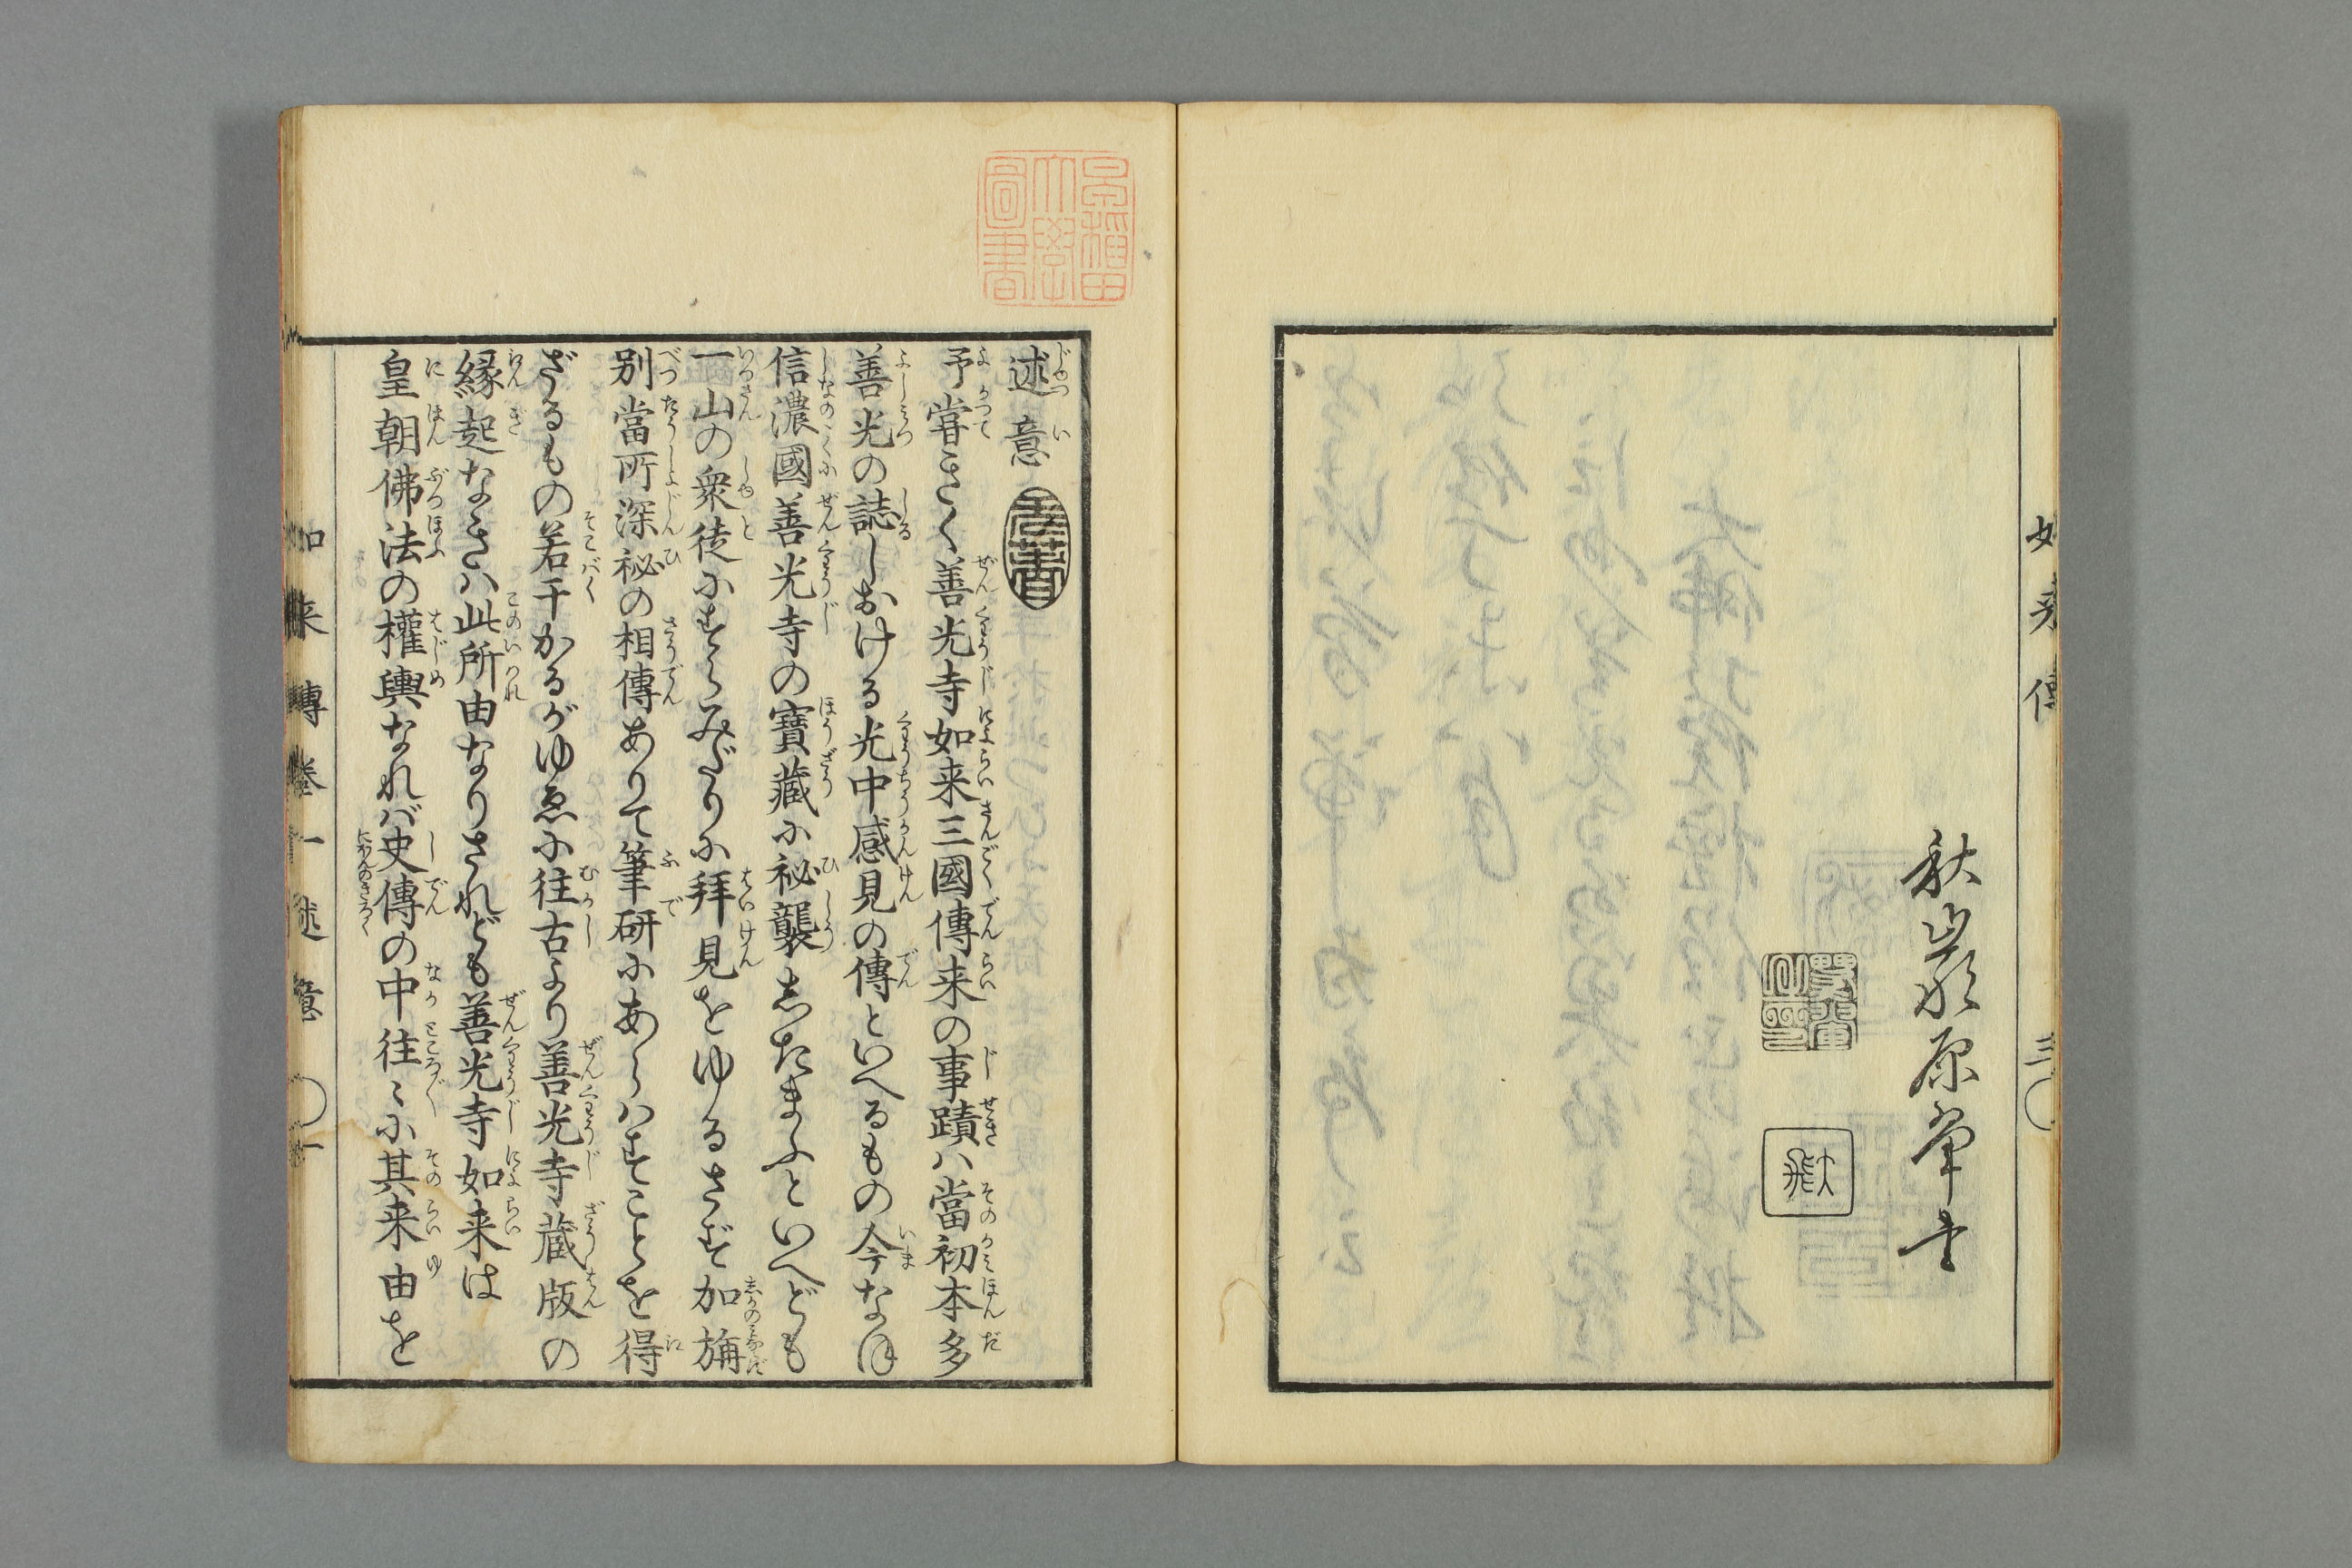 秋巌原翬書
如来傳
三
早稲田大學圖書
述意
予甞きく善光寺如来三國傳来の事蹟ハ當初本多
善光の誌しおける光中感見の傳といへるもの今なほ
信濃國善光寺の寶藏に祕襲したまふといへども
一山の衆徒にすらみだりに拜見をゆるさず加旃
別當所深祕の相傳ありて筆研にあらハすことを得
ざるもの若干かるがゆゑに往古より善光寺蔵版の
縁起なきハ此所由なりされども善光寺如来は
皇朝佛法の權輿なれバ史傳の中往〻に其来由を
如来傳巻一述意 一